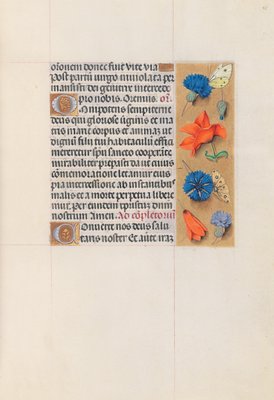 oronem donec fuit vite via
Post partū virgo inviolata per
mansisti dei genitrix intercede
pro nobis. Oremus. or̄o.
Omnipotens sempiterne
deus qui gloriose virginis et ma
tris marie corpus et animam ut
dignū filii tui habitaculū effici
mereretur spū sancto cooperāte
mirabiliter preparasti da ut cuius
cōmemoratione letamur eius
pia intercessione ab instantibꝰ
malis et a morte perpetua libere
mur. Per eundem xpistum dnm
nostrum Amen. Ad cōpletoriū
Converte nos deus salu
taris noster Et averte iraz